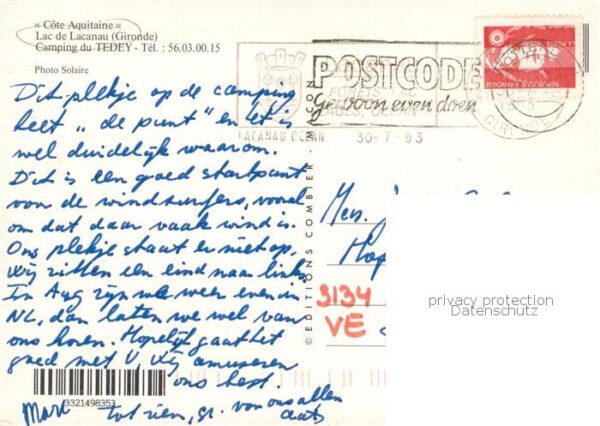 « Côte Aquitaine »
Lac de Lacanau (Gironde)
Camping du TEDEY - Tél. : 56.03.00.15
Photo Solaire
Dit plekje op de camping
heet „de punt" en het is
wel duidelijk waarom.
Dit is een goed startpunt
voor de windsurfers, vooral
om dat daar vaak wind is.
Ons plekje staat er niet op,
wij zitten een eind naar links
In Aug zijn we weer even in
NL, dan laten we wel van
ons horen. Hopelijk gaat het
goed met U, wij amuseren
ons best.
tot ziens, gr. van ons allen
Marc
3321498353
© EDITIONS COMBIER MACON
POSTCODE
gewoon even doen
LACANAU OCEAN
30-7-93
REPUBLIQUE FRANCAISE
GIRONDE
3134
VE
privacy protection
Datenschutz